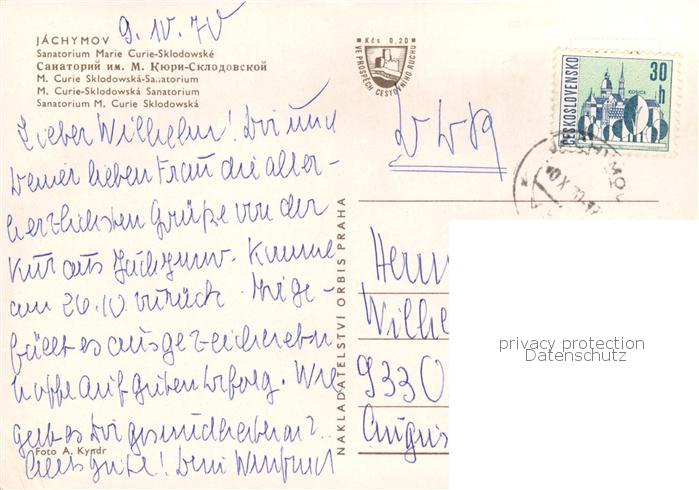 9. 10. 70
JÁCHYMOV
Sanatorium Marie Curie-Sklodowské
Санаторий им. М. Кюри-Склодовской
M. Curie Sklodowská-Sanatorium
M. Curie-Sklodowská Sanatorium
Sanatorium M. Curie Sklodowská
Kčs 0,20
VE PROSPĚCH CESTOVNÍHO RUCHU
ČESKOSLOVENSKO
30 h
KOŠICE
JÁCHYMOV
Lieber Wilhelm! Dir und
Deiner lieben Frau die aller-
herzlichsten Grüße von der
Kur aus Jáchymov. Komme
am 26.10 zurück. Mir ge-
fällt es ausgezeichnet
hoffe auf guten Erfolg. Wie
geht es Dir gesundheitlich?
Alles gute! Dein
NAKLADATELSTVÍ ORBIS PRAHA
Herrn
Wilhe
9330
Augus
privacy protection
Datenschutz
Foto A. Kyndr